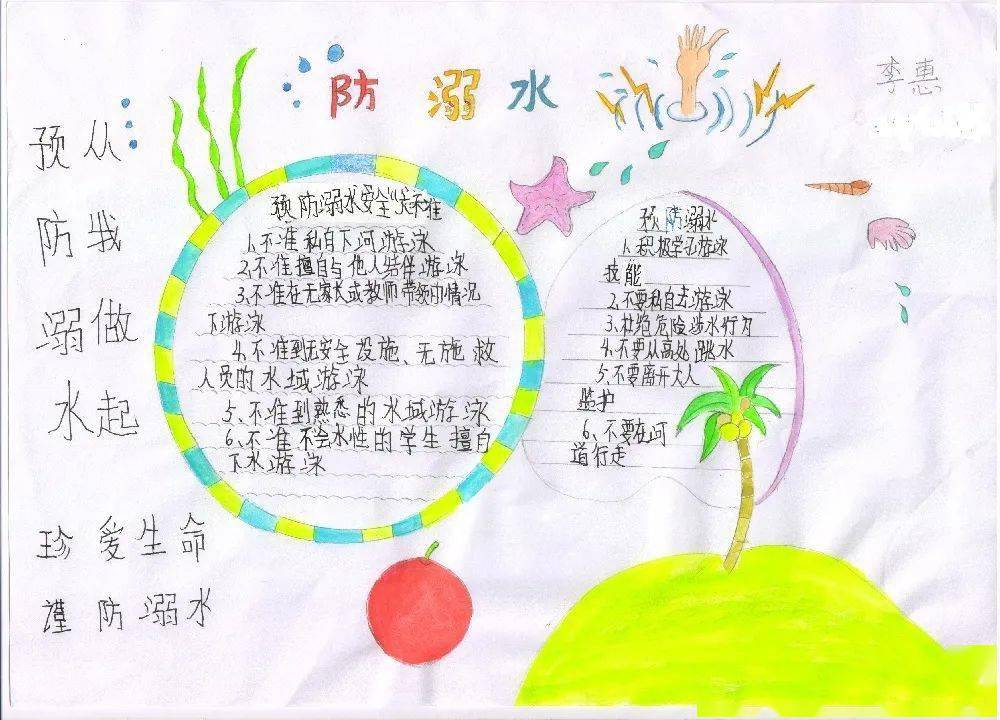 防 溺水
李惠
预防溺水
从我做起
珍爱生命
谨防溺水
预防溺水安全"六不准
1.不准私自下河游泳
2.不准擅自与他人结伴游泳
3.不准在无家长或教师带领的情况
下游泳
4.不准到无安全设施、无施救
人员的水域游泳
5.不准到熟悉的水域游泳
6.不准不会水性的学生擅自
下水游泳
预防溺水
1.积极学习游泳
技能
2.不要私自去游泳
3.杜绝危险涉水行为
4.不要从高处跳水
5.不要离开大人
监护
6.不要在河
道行走